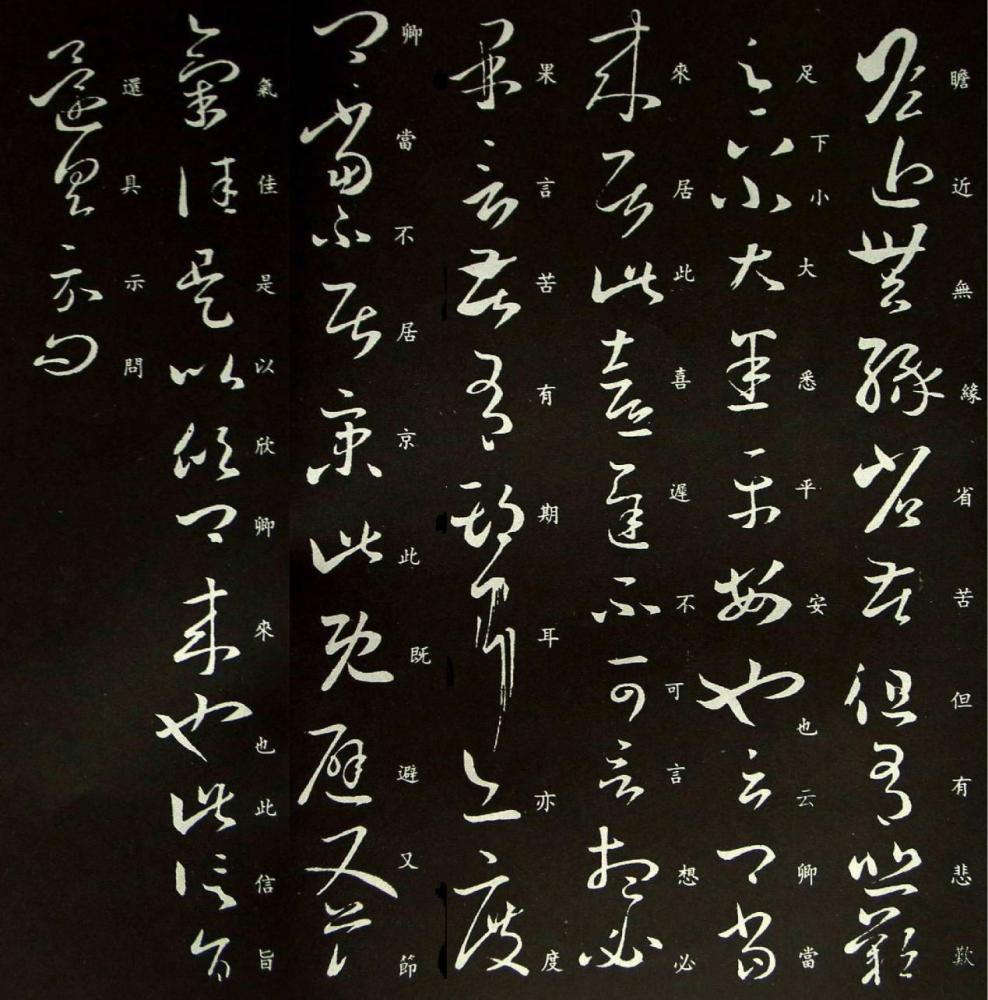 瞻近無緣省苦但有悲歎
足下小大悉平安也云卿當
來居此喜遲不可言想必
果言苦有期耳亦度
卿當不居京此既避又節
氣佳是以欣卿來也此信旨
還具示問